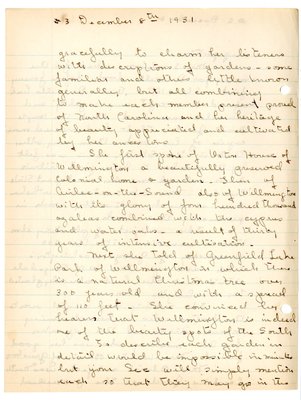 #3 December 8th 1931
gracefully to charm her listeners
with descriptions of gardens - some
familiar and others little known
generally, but all combining
to make each member present proud
of North Carolina and her heritage
of beauty appreciated and cultivated
by her ancestors.
She first spoke of Orton House of
Wilmington a beautifully
colonial home & garden. Then of
Airlie-on-the-Sound also of Wilmington
with its glory of four hundred thousand
azaleas combined with the cypress
and water oaks - a result of thirty
years of intensive cultivation.
Next she told of Greenfield Lake
Park of Wilmington in which there
is a natural Christmas tree over
300 years old and with a spread
of 110 feet. She convinced her
hearers that Wilmington is indeed
one of the beauty spots of the South.
To describe each garden in
detail would be impossible in minutes
but your Sec. will simply mention
each so that they may go in the